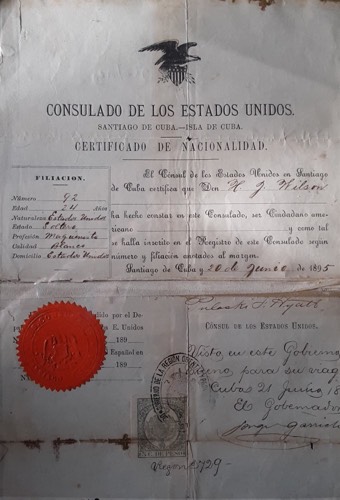 CONSULADO DE LOS ESTADOS UNIDOS.
SANTIAGO DE CUBA.—ISLA DE CUBA.
CERTIFICADO DE NACIONALIDAD.
FILIACION.
Número 92
Edad 24 Años
Naturaleza Estados Unidos
Estado Soltero
Profesión Maquinista
Calidad Blanco
Domicilio Estados Unidos
El Cónsul de los Estados Unidos en Santiago
de Cuba certifica que Don H. J. Wilson
ha hecho constar en este Consulado, ser Ciudadano ame-
ricano y como tal
se halla inscrito en el Registro de este Consulado según
número y filiación anotados al margen.
Santiago de Cuba y 20 de Junio de 1895
Pulaski F. Hyatt
CÓNSUL DE LOS ESTADOS UNIDOS.
dido por el De-
E. Unidos
189
Español en
189
Visto en este Gobierno
para su
Cuba 21 junio 18
El Gobernador
DE LA REGION
729-